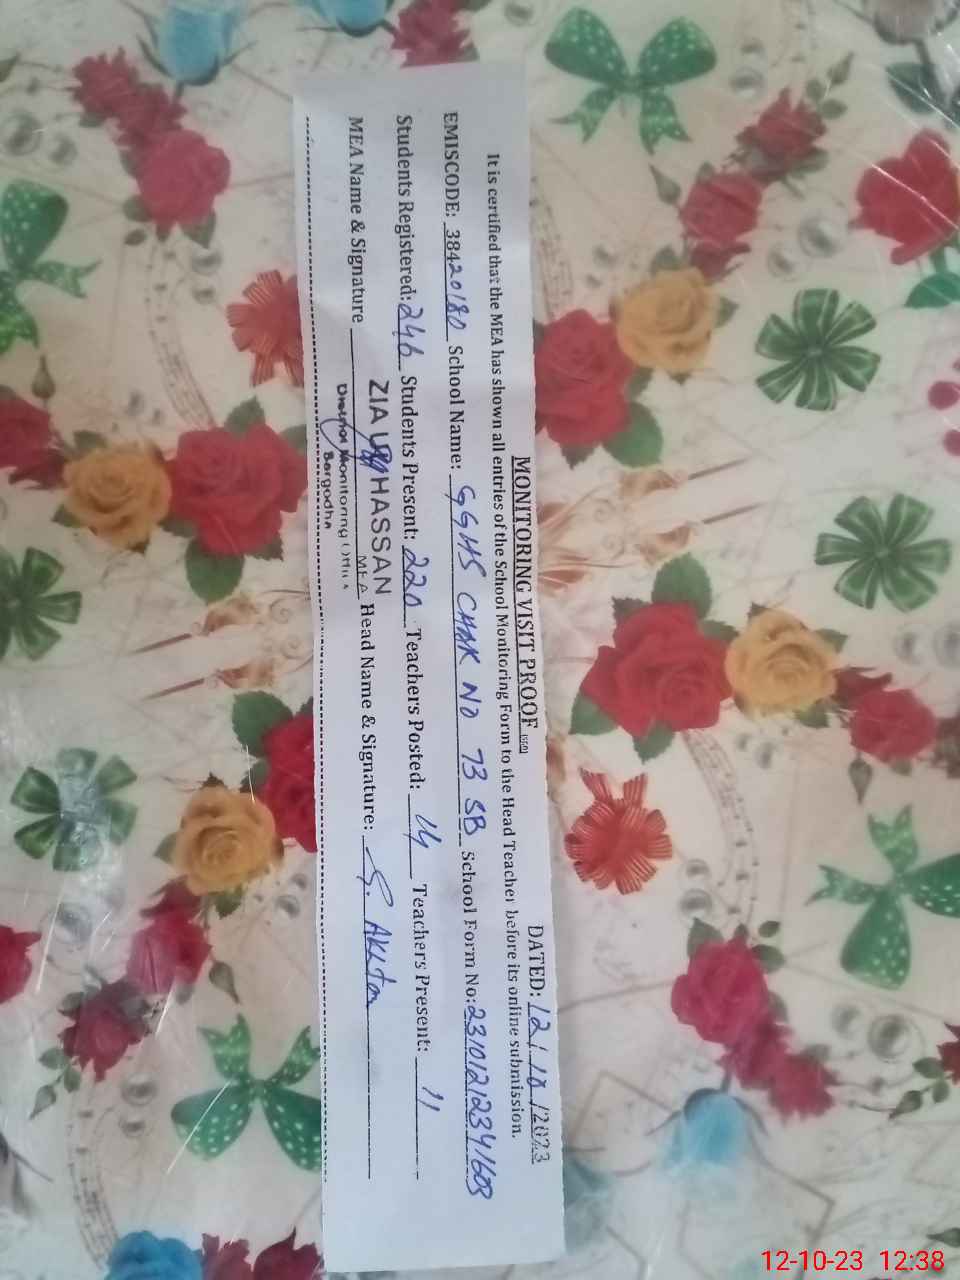 MONITORING VISIT PROOF
DATED: 12/10/2023
It is certified that the MEA has shown all entries of the School Monitoring Form to the Head Teacher before its online submission.
EMISCODE: 38420180 School Name: GGHS CHAK NO 73 SB School Form No: 23101212341603
Students Registered: 246 Students Present: 220 Teachers Posted: 14 Teachers Present: 11
MEA Name & Signature ZIA UL HASSAN MEA Head Name & Signature: S. Akhtar
Monitoring
Sargodha
12-10-23 12:38